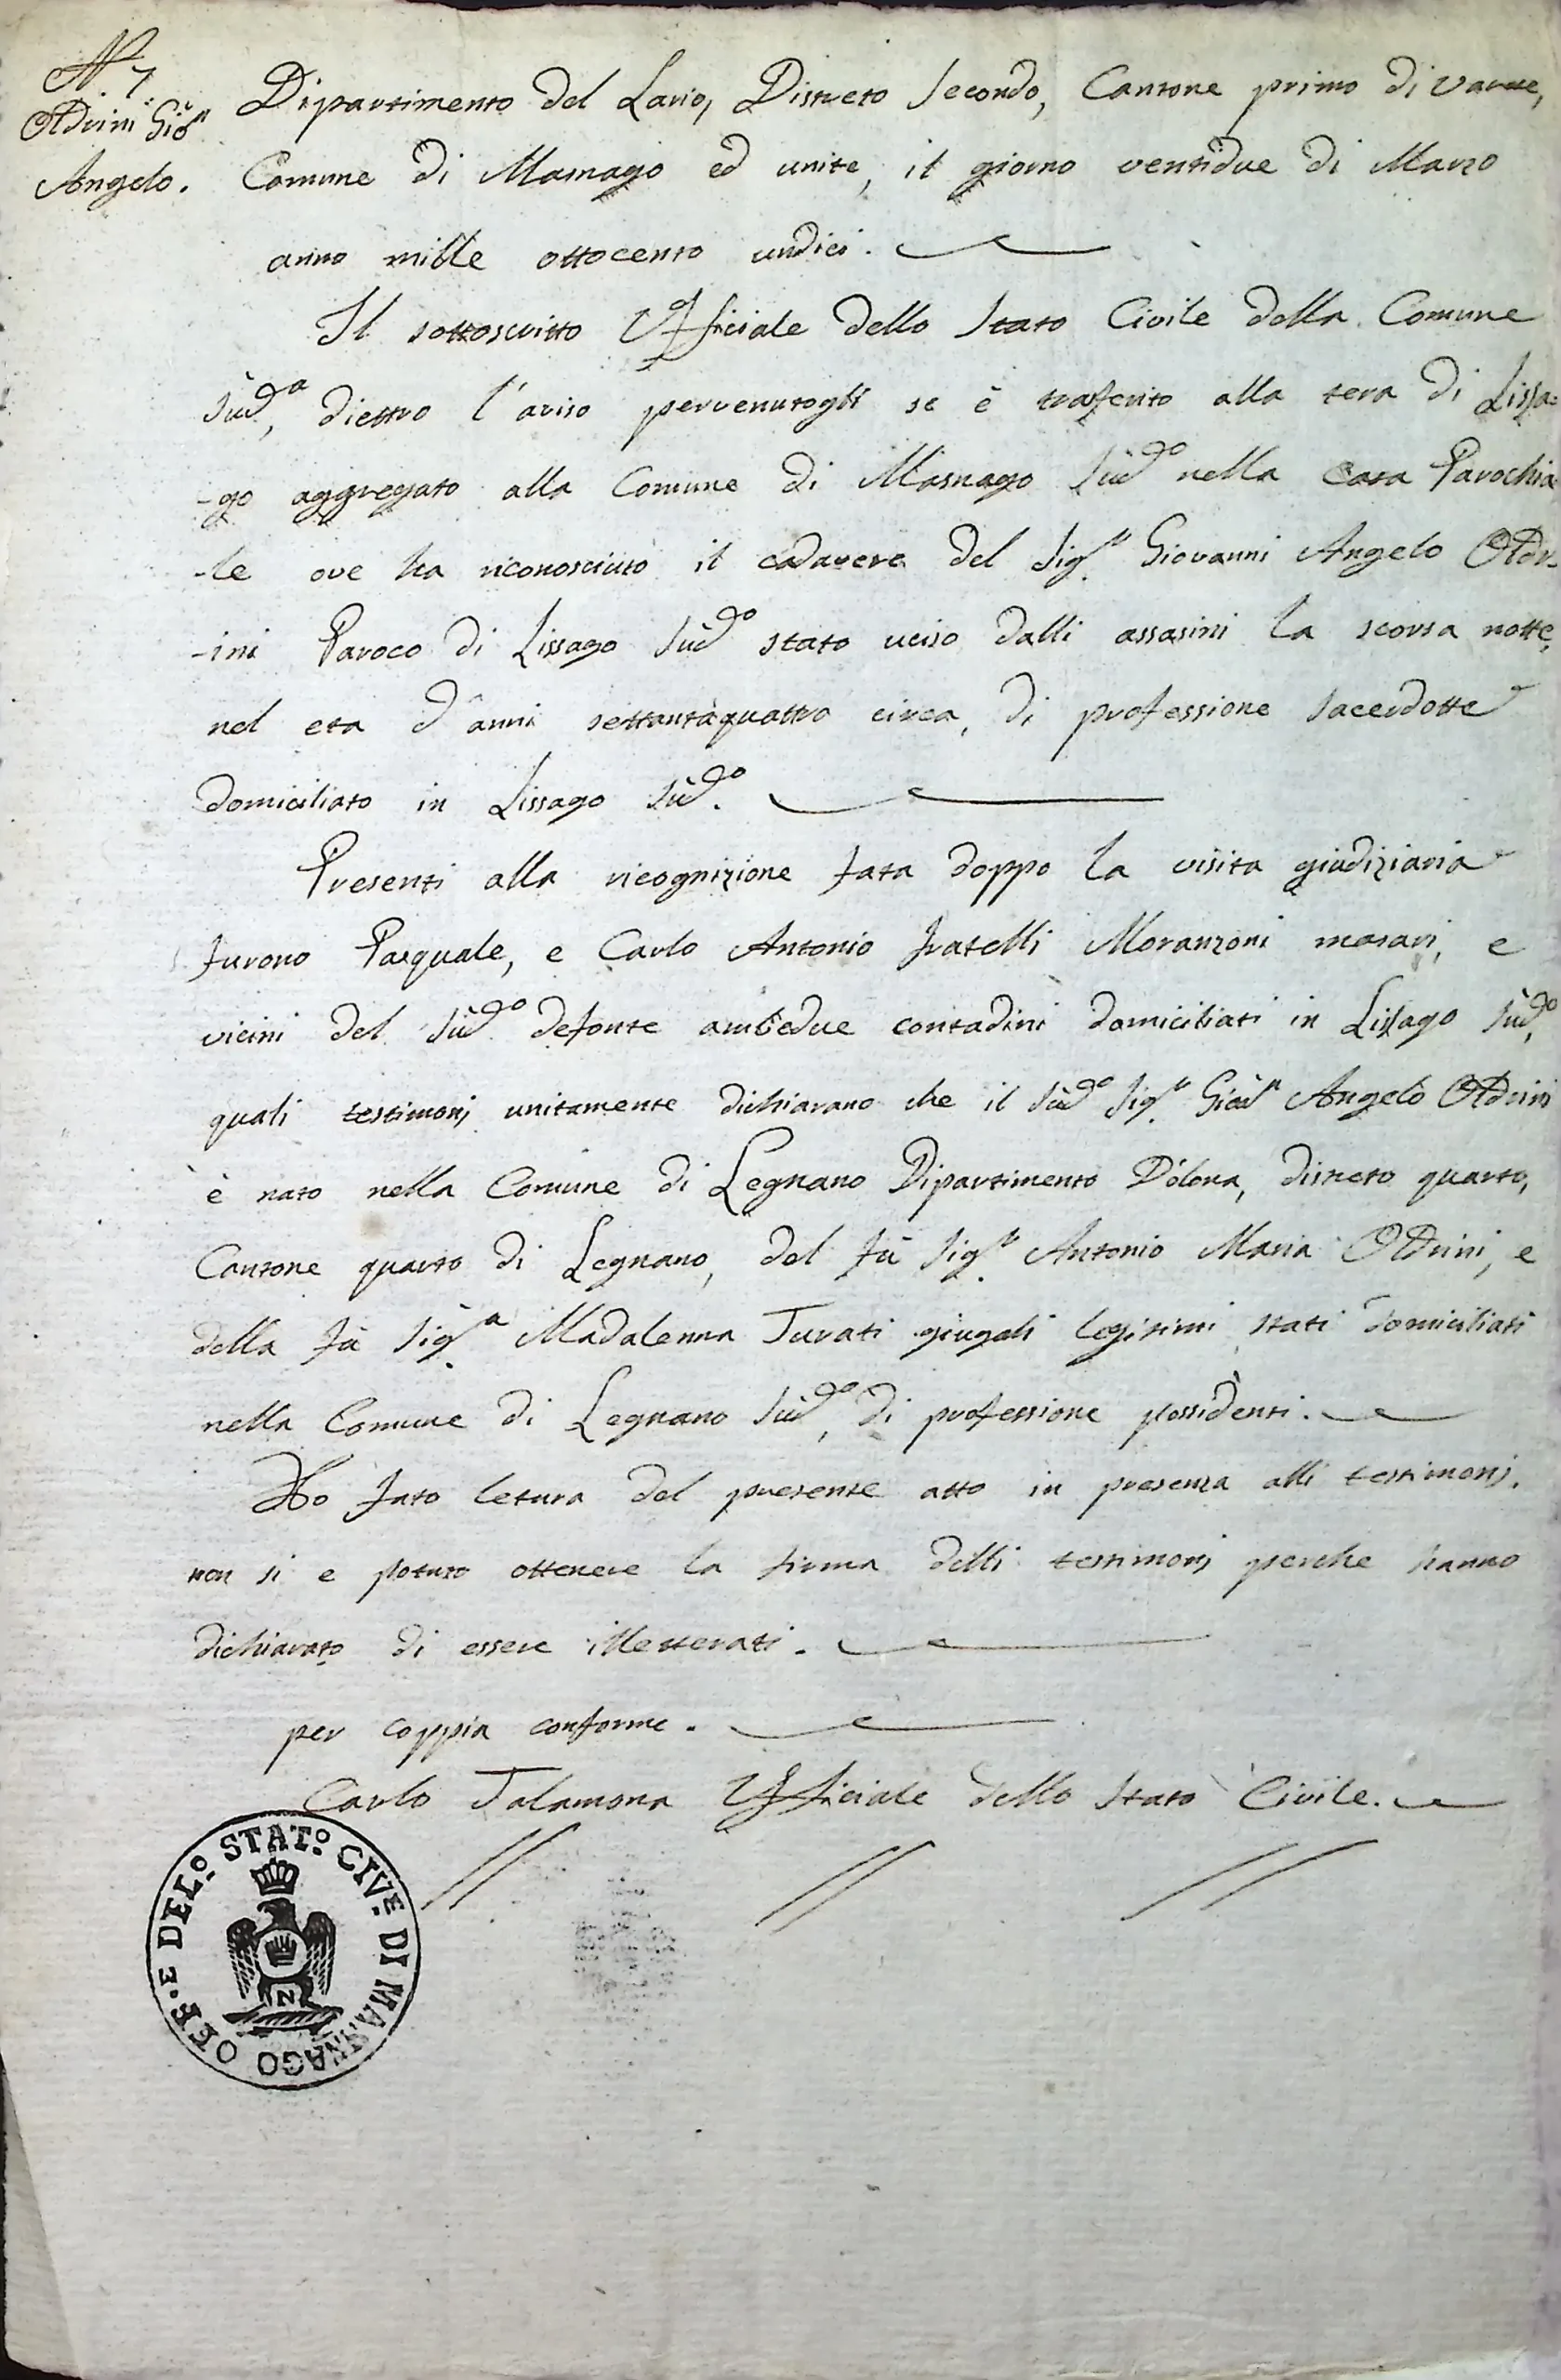 N. 7
Oldrini Gioⁿ
Angelo.
Dipartimento del Lario, Distreto Secondo, Cantone primo di Varese,
Comune di Masnago ed unite, il giorno ventidue di Marzo
anno mille ottocento undici.
Il sottoscritto Ufficiale dello Stato Civile della Comune
Sudᵃ, diettro l'aviso pervenutogli se è trasferito alla tera di Lissa=
-go aggregato alla Comune di Masnago Sudᵒ nella casa Parochia
-le ove ha riconosciuto il cadavere del Sigʳ. Giovanni Angelo Oldr-
-ini Paroco di Lissago Sudᵒ stato uciso dalli assasini la scorsa notte,
nel eta d'anni settantaquattro circa, di professione Sacerdotte
domiciliato in Lissago Sudᵒ.
Presenti alla ricognizione fata doppo la visita giudiziaria
furono Pasquale, e Carlo Antonio fratelli Moranzoni masari, e
vicini del Sudᵒ defonte ambedue contadini domiciliati in Lissago Sudᵒ,
quali testimonj unitamente dichiarano che il Sudᵒ Sigʳ. Gioⁿ Angelo Oldrini
è nato nella Comune di Legnano Dipartimento D'olona, distreto quarto,
Cantone quarto di Legnano, del fù Sigʳ. Antonio Maria Oldrini, e
della fù Sigᵃ. Madalenna Turati giugali legitimi stati domiciliati
nella Comune di Legnano Sudᵒ, di professione possidenti.
Ho fato letura del presente atto in presenza alli testimonj.
non si e potuto ottenere la firma delli testimonj perche hanno
dichiarato di essere illetterati.
per coppia conforme.
Carlo Talamona Ufficiale dello Stato Civile.
OFF.ᴱ DELᴼ. STATᴼ. CIVᴱ. DI MASNAGO
N